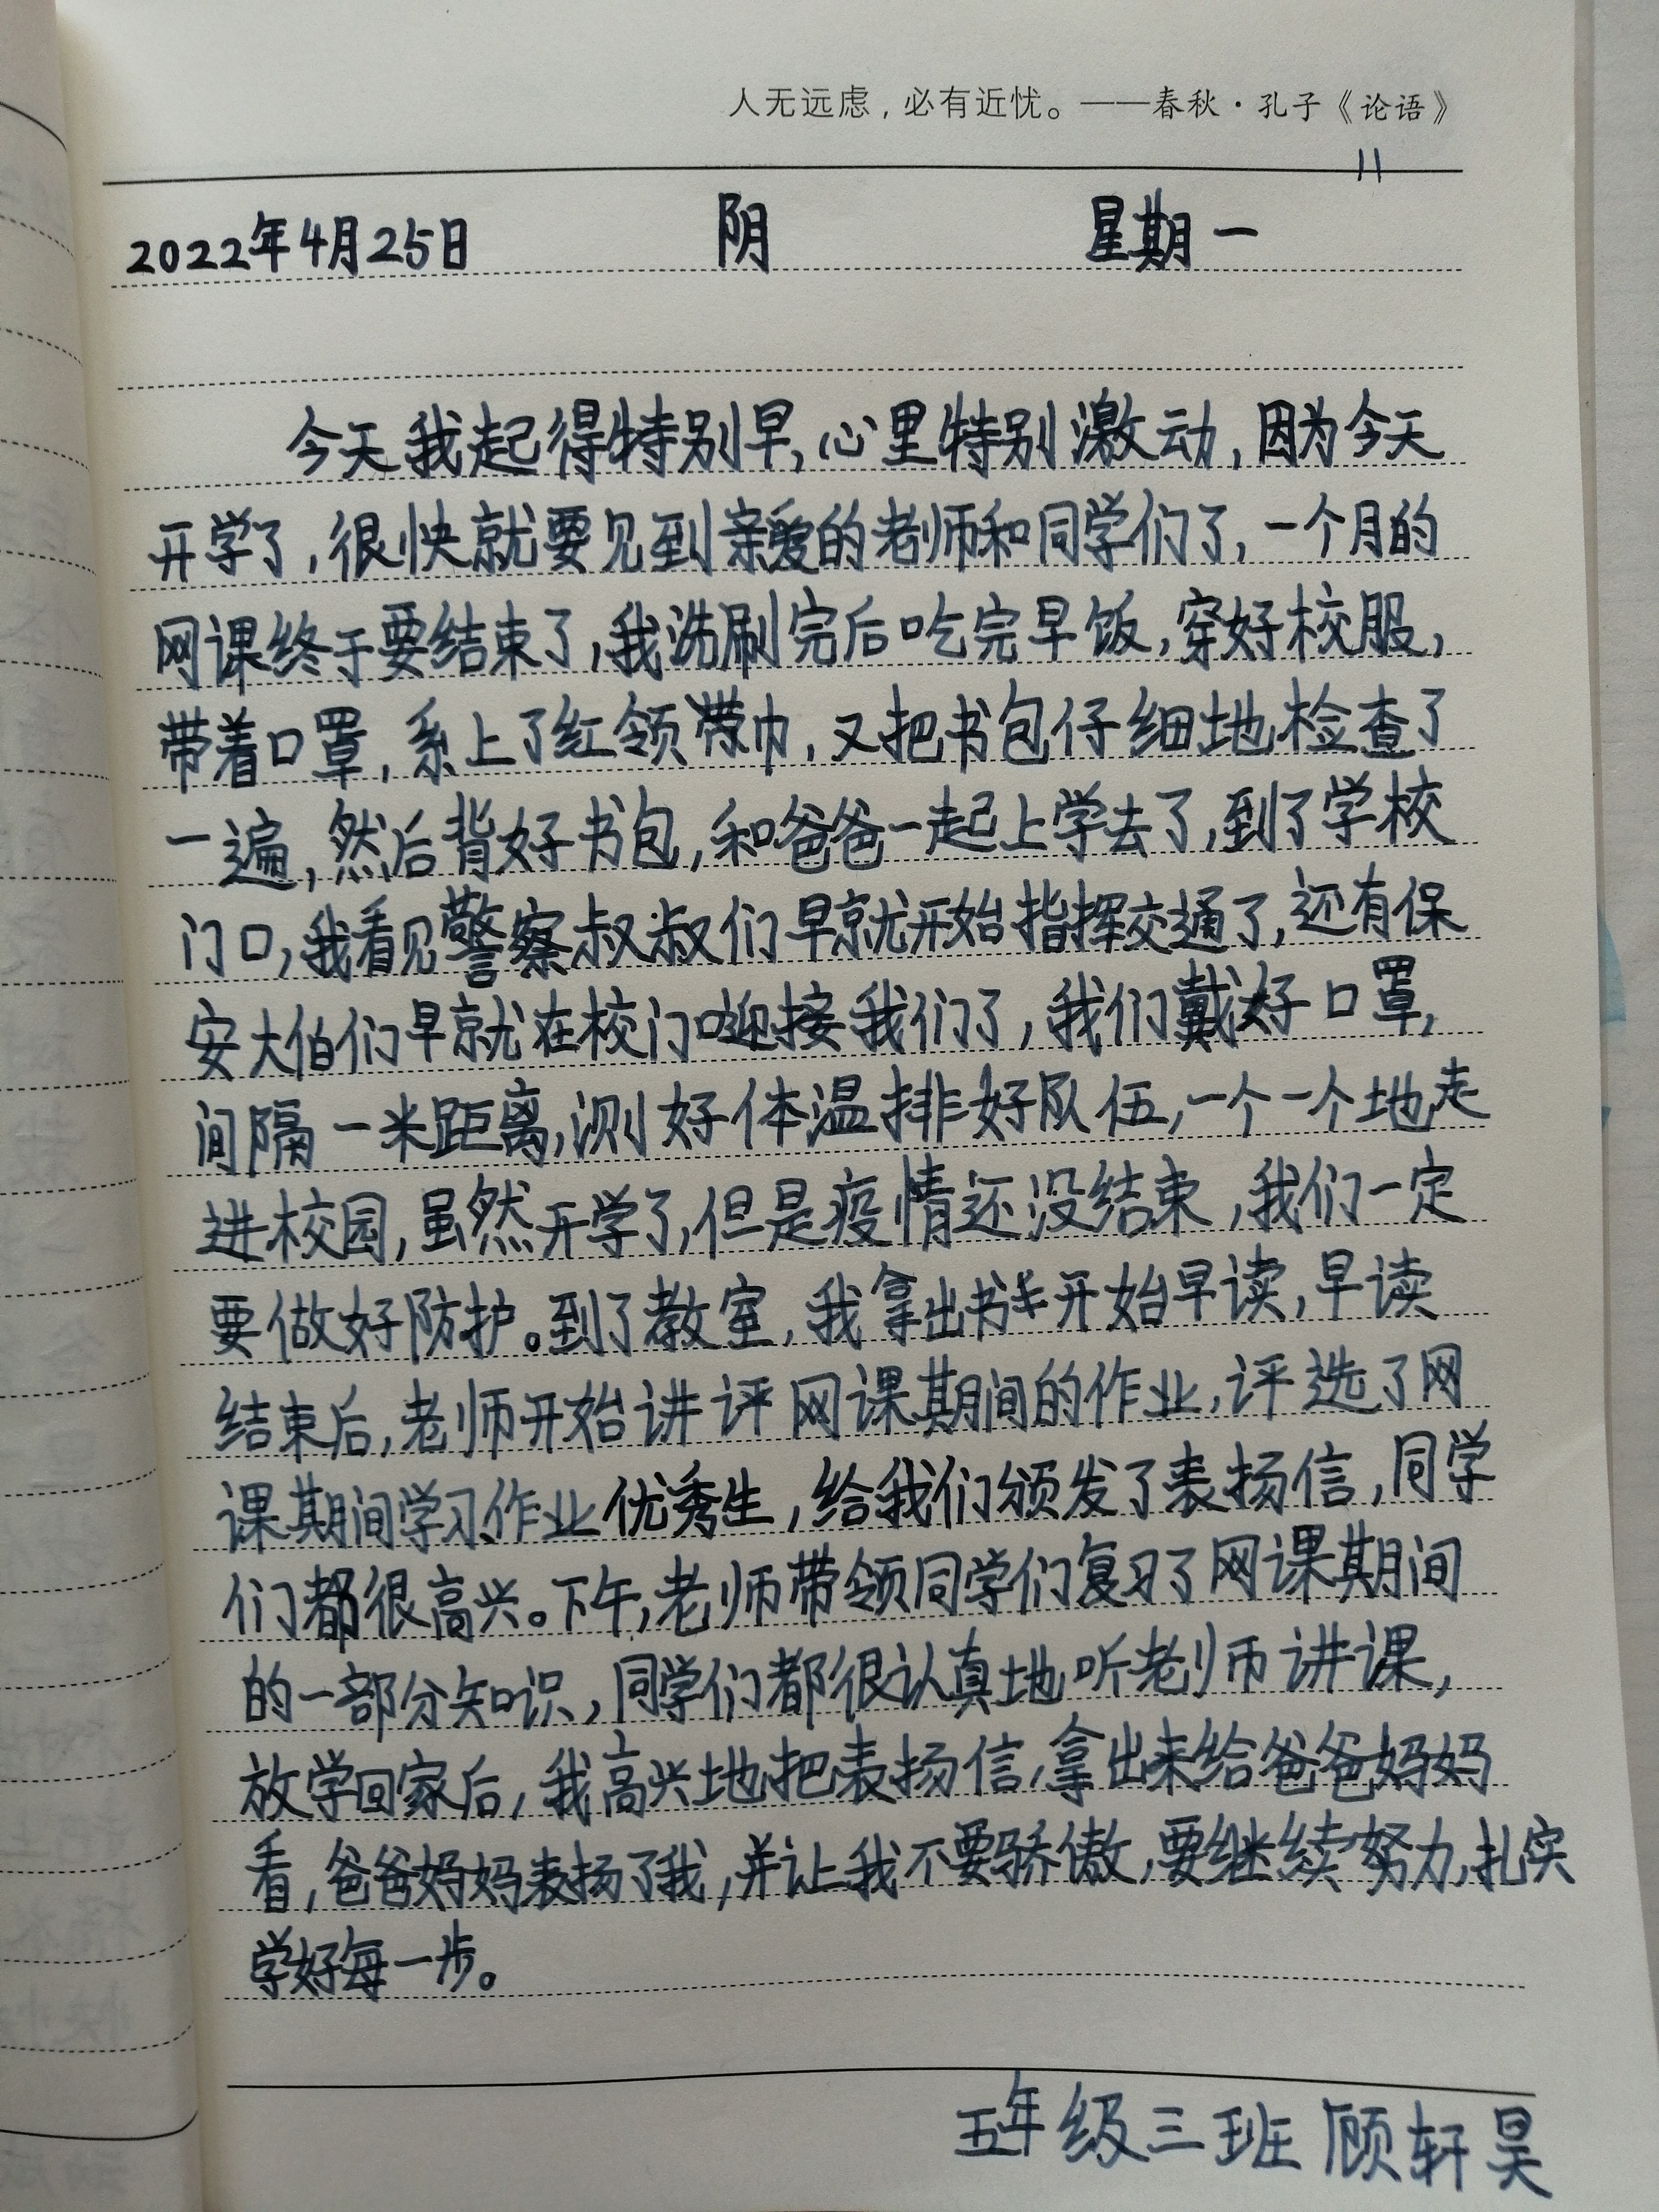 人无远虑，必有近忧。——春秋·孔子《论语》
11
2022年4月25日 阴 星期一
今天我起得特别早，心里特别激动，因为今天
开学了，很快就要见到亲爱的老师和同学们了，一个月的
网课终于要结束了，我洗刷完后吃完早饭，穿好校服，
带着口罩，系上了红领巾，又把书包仔细地检查了
一遍，然后背好书包，和爸爸一起上学去了，到了学校
门口，我看见警察叔叔们早就开始指挥交通了，还有保
安大伯们早就在校门口迎接我们了，我们戴好口罩，
间隔一米距离，测好体温排好队伍，一个一个地走
进校园，虽然开学了，但是疫情还没结束，我们一定
要做好防护。到了教室，我拿出书开始早读，早读
结束后，老师开始讲评网课期间的作业，评选了网
课期间学习、作业优秀生，给我们颁发了表扬信，同学
们都很高兴。下午，老师带领同学们复习了网课期间
的一部分知识，同学们都很认真地听老师讲课，
放学回家后，我高兴地把表扬信，拿出来给爸爸妈妈
看，爸爸妈妈表扬了我，并让我不要骄傲，要继续努力，扎实
学好每一步。
五年级三班 顾轩昊